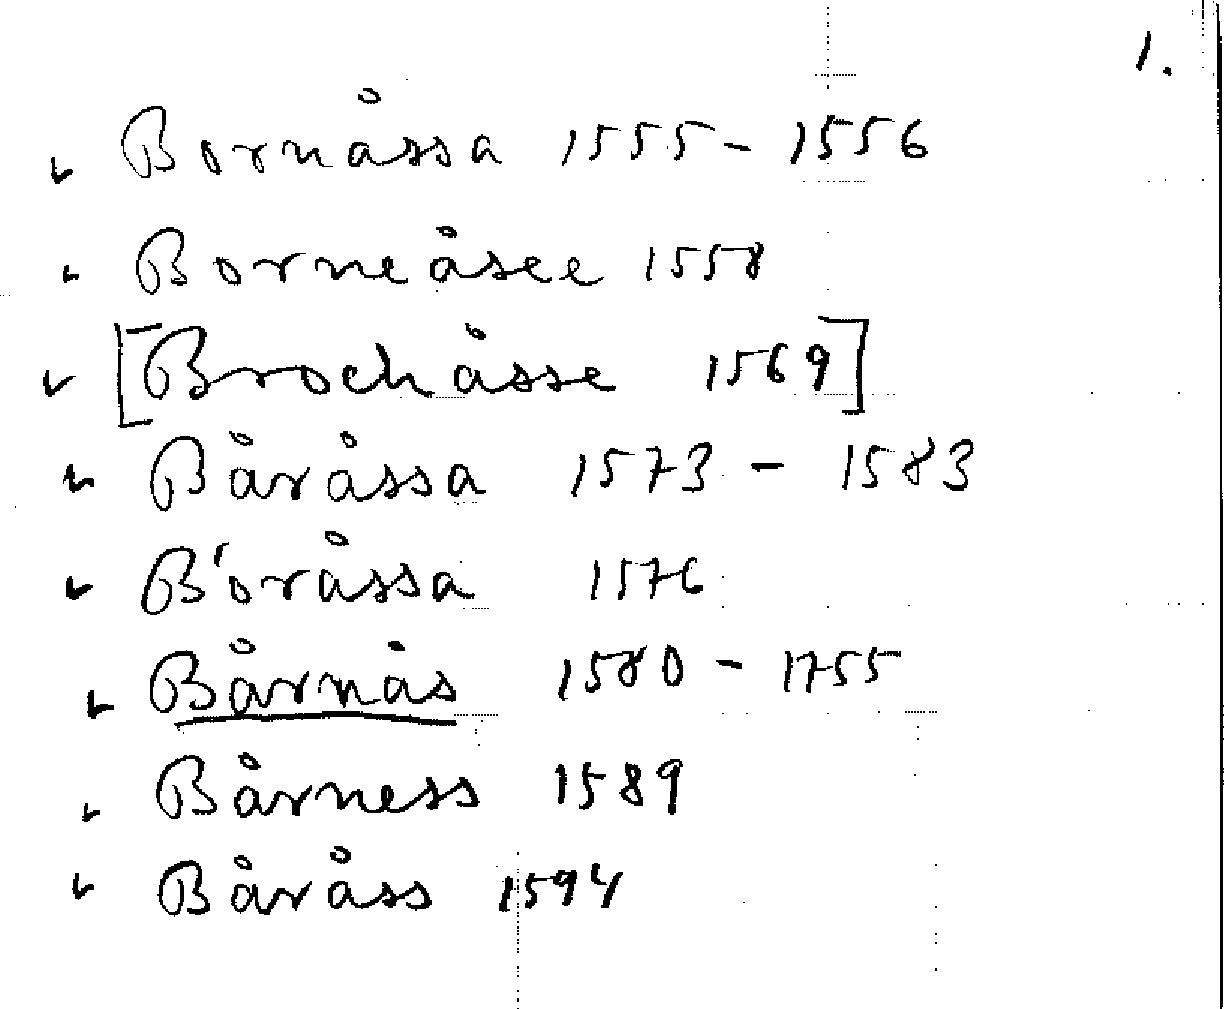 1.
Bornåssa 1555 - 1556
Borneåsee 1558
[Brochåsse 1569]
Båråssa 1573 - 1583
B'oråssa 1576
Bårnås 1580 - 1755
Bårness 1589
Båråss 1594